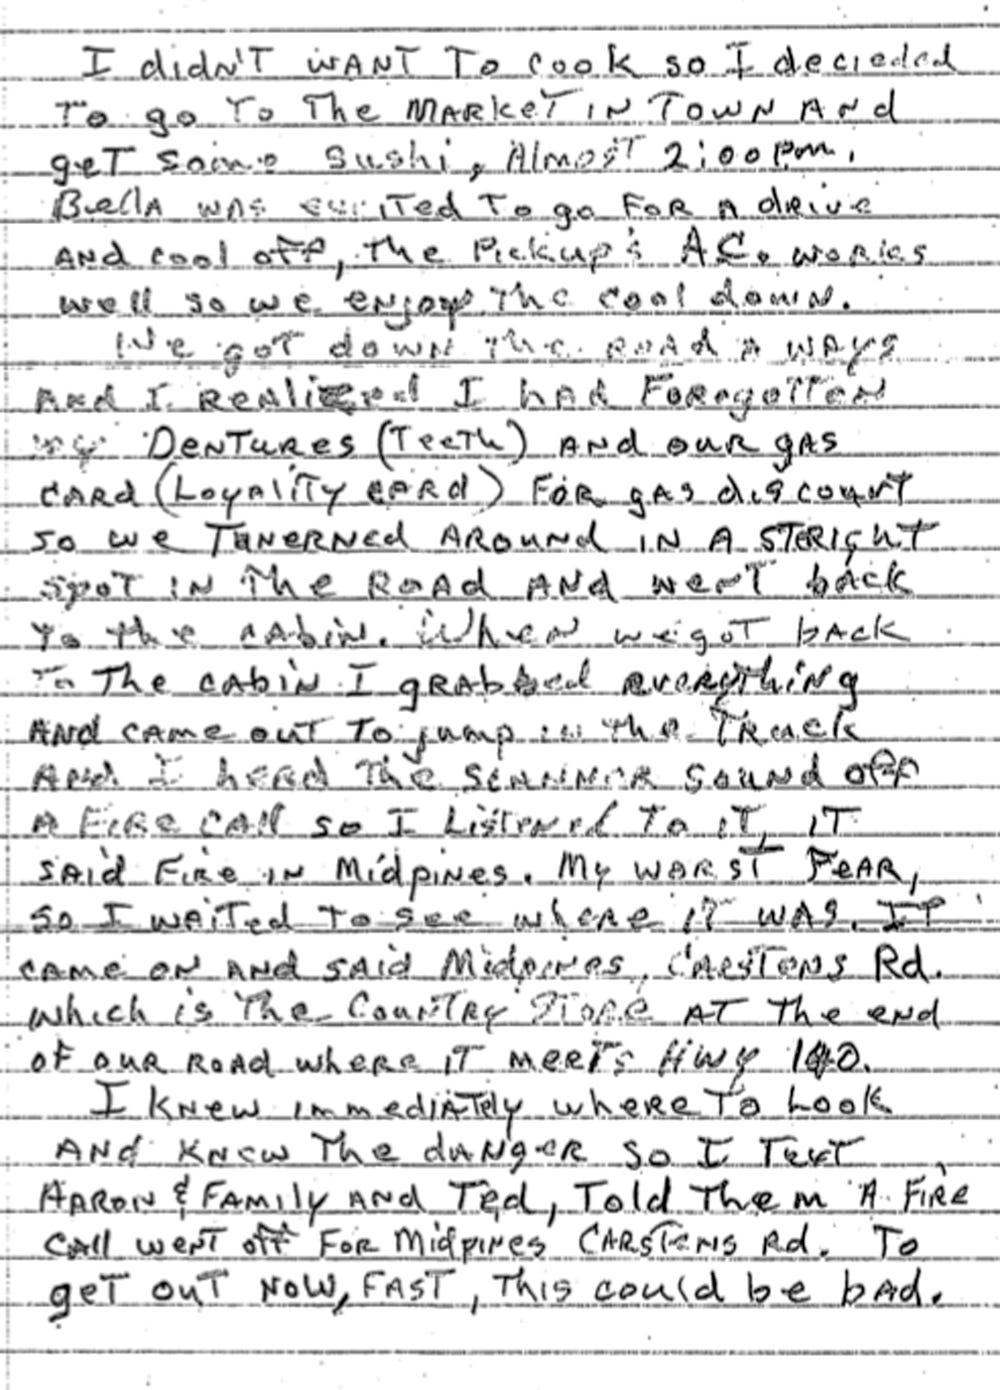 I didn't want to cook so I decieded
to go to the market in town and
get some sushi, Almost 2:00pm.
Bella was excited to go for a drive
and cool off, the Pickup's AC. works
well so we enjoy the cool down.
We got down the road a ways
and I realized I had Foregotten
my Dentures (Teeth) and our gas
card (Loyality card) For gas discount
so we Tunerned Around in a steright
spot in the Road and went back
to the cabin. When we got back
To The cabin I grabbed everything
And came out to jump in the Truck
And I herd the scanner sound off
A Fire Call so I Listened to it, it
said Fire in Midpines. My warst Fear,
so I waited to see where it was. It
came on and said Midpines, Carstens Rd.
which is The Country Store at the end
of our road where it meets Hwy 140.
I knew immediately where to Look
And knew The danger so I Text
Aaron & Family and Ted, Told Them A Fire
Call went off For Midpines Carstens Rd. To
get out now, Fast, This could be bad.